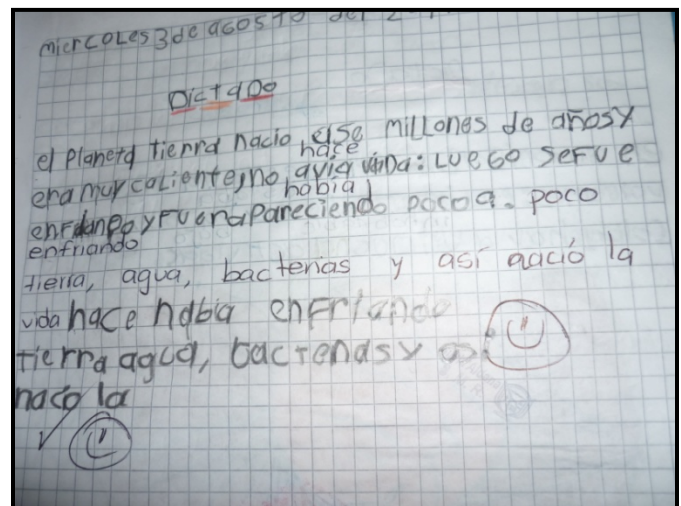 miercoles 3 de agosto del
Dictado
el Planeta tierra nacio ase millones de años y
hace
era muy caliente, no avia vida: Luego se fue
había
enfriando y fueron apareciendo poco a. poco
enfriando
tierra, agua, bacterias y así nació la
vida hace había enfriando
tierra agua, bacterias y
nacio la